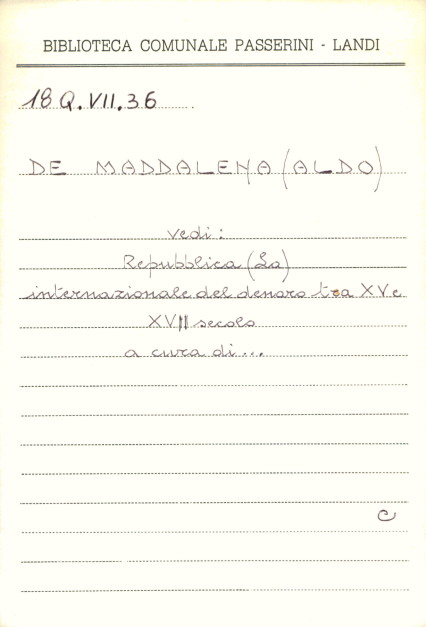 BIBLIOTECA COMUNALE PASSERINI - LANDI
18 Q.VII.36
DE MADDALENA (ALDO)
vedi:
Repubblica (La)
internazionale del denaro tra XV e
XVII secolo
a cura di...
C